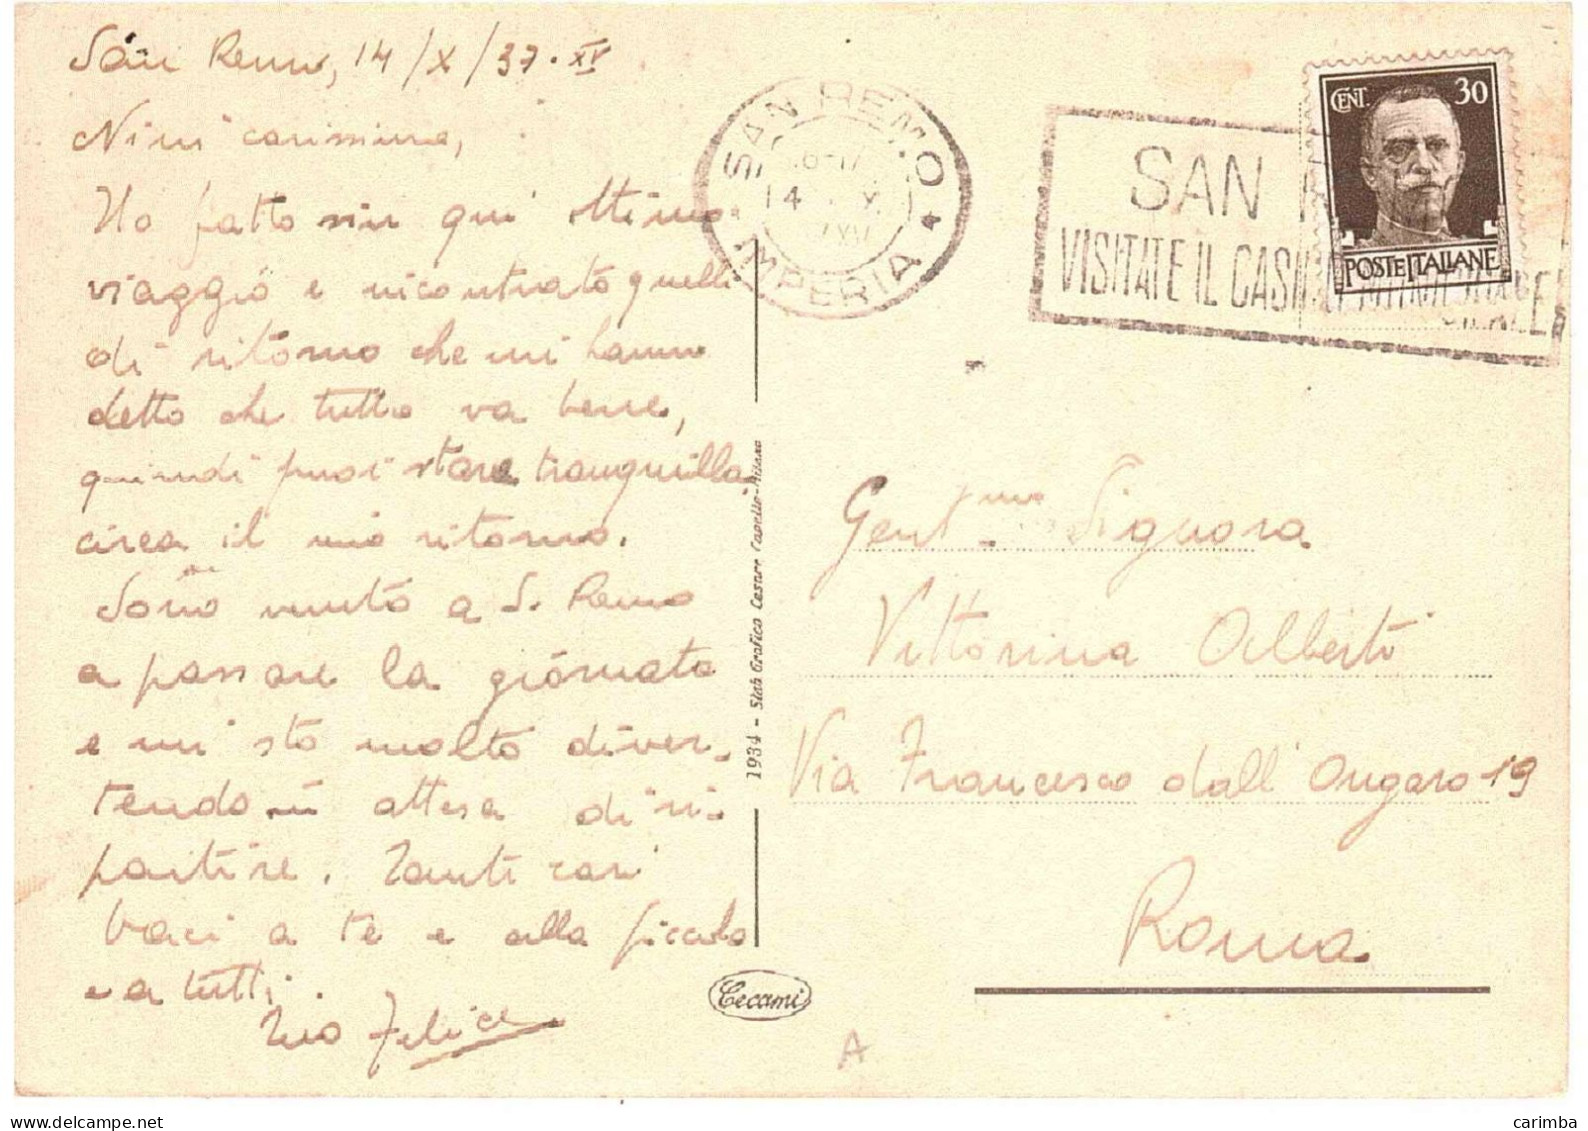 San Remo, 14/X/37. XV
Nini carissima,
Ho fatto sin qui ottimo
viaggio e ricontrato quelli
di ritorno che mi hanno
detto che tutto va bene,
quindi puoi stare tranquilla
circa il mio ritorno.
Sono venuto a S. Remo
a passare la giornata
e mi sto molto diver-
tendo in attesa di ri-
partire. Tanti cari
baci a te e alla piccola
e a tutti.
Tuo Felice
SAN REMO
14 X
XV
IMPERIA
SAN
VISITATE IL CASI
CENT. 30
POSTE ITALIANE
1934 - Stab Grafico Cesare Capello-Milano
Gent.ma Signora
Vittorina Alberti
Via Francesco dall'Ongaro 19
Roma
Cecami
A
carimba